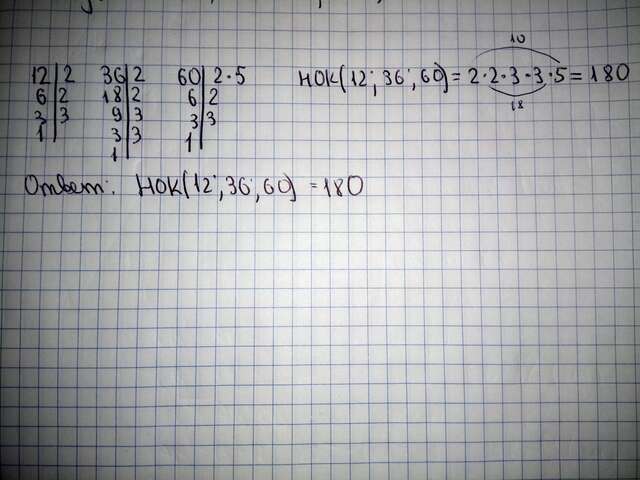 10
12|2 36|2 60|2·5 НОК(12; 36; 60) = 2·2·3·3·5 = 180
6|2 18|2 6|2 18
3|3 9|3 3|3
1 3|3 1
1
Ответ: НОК(12; 36; 60) = 180